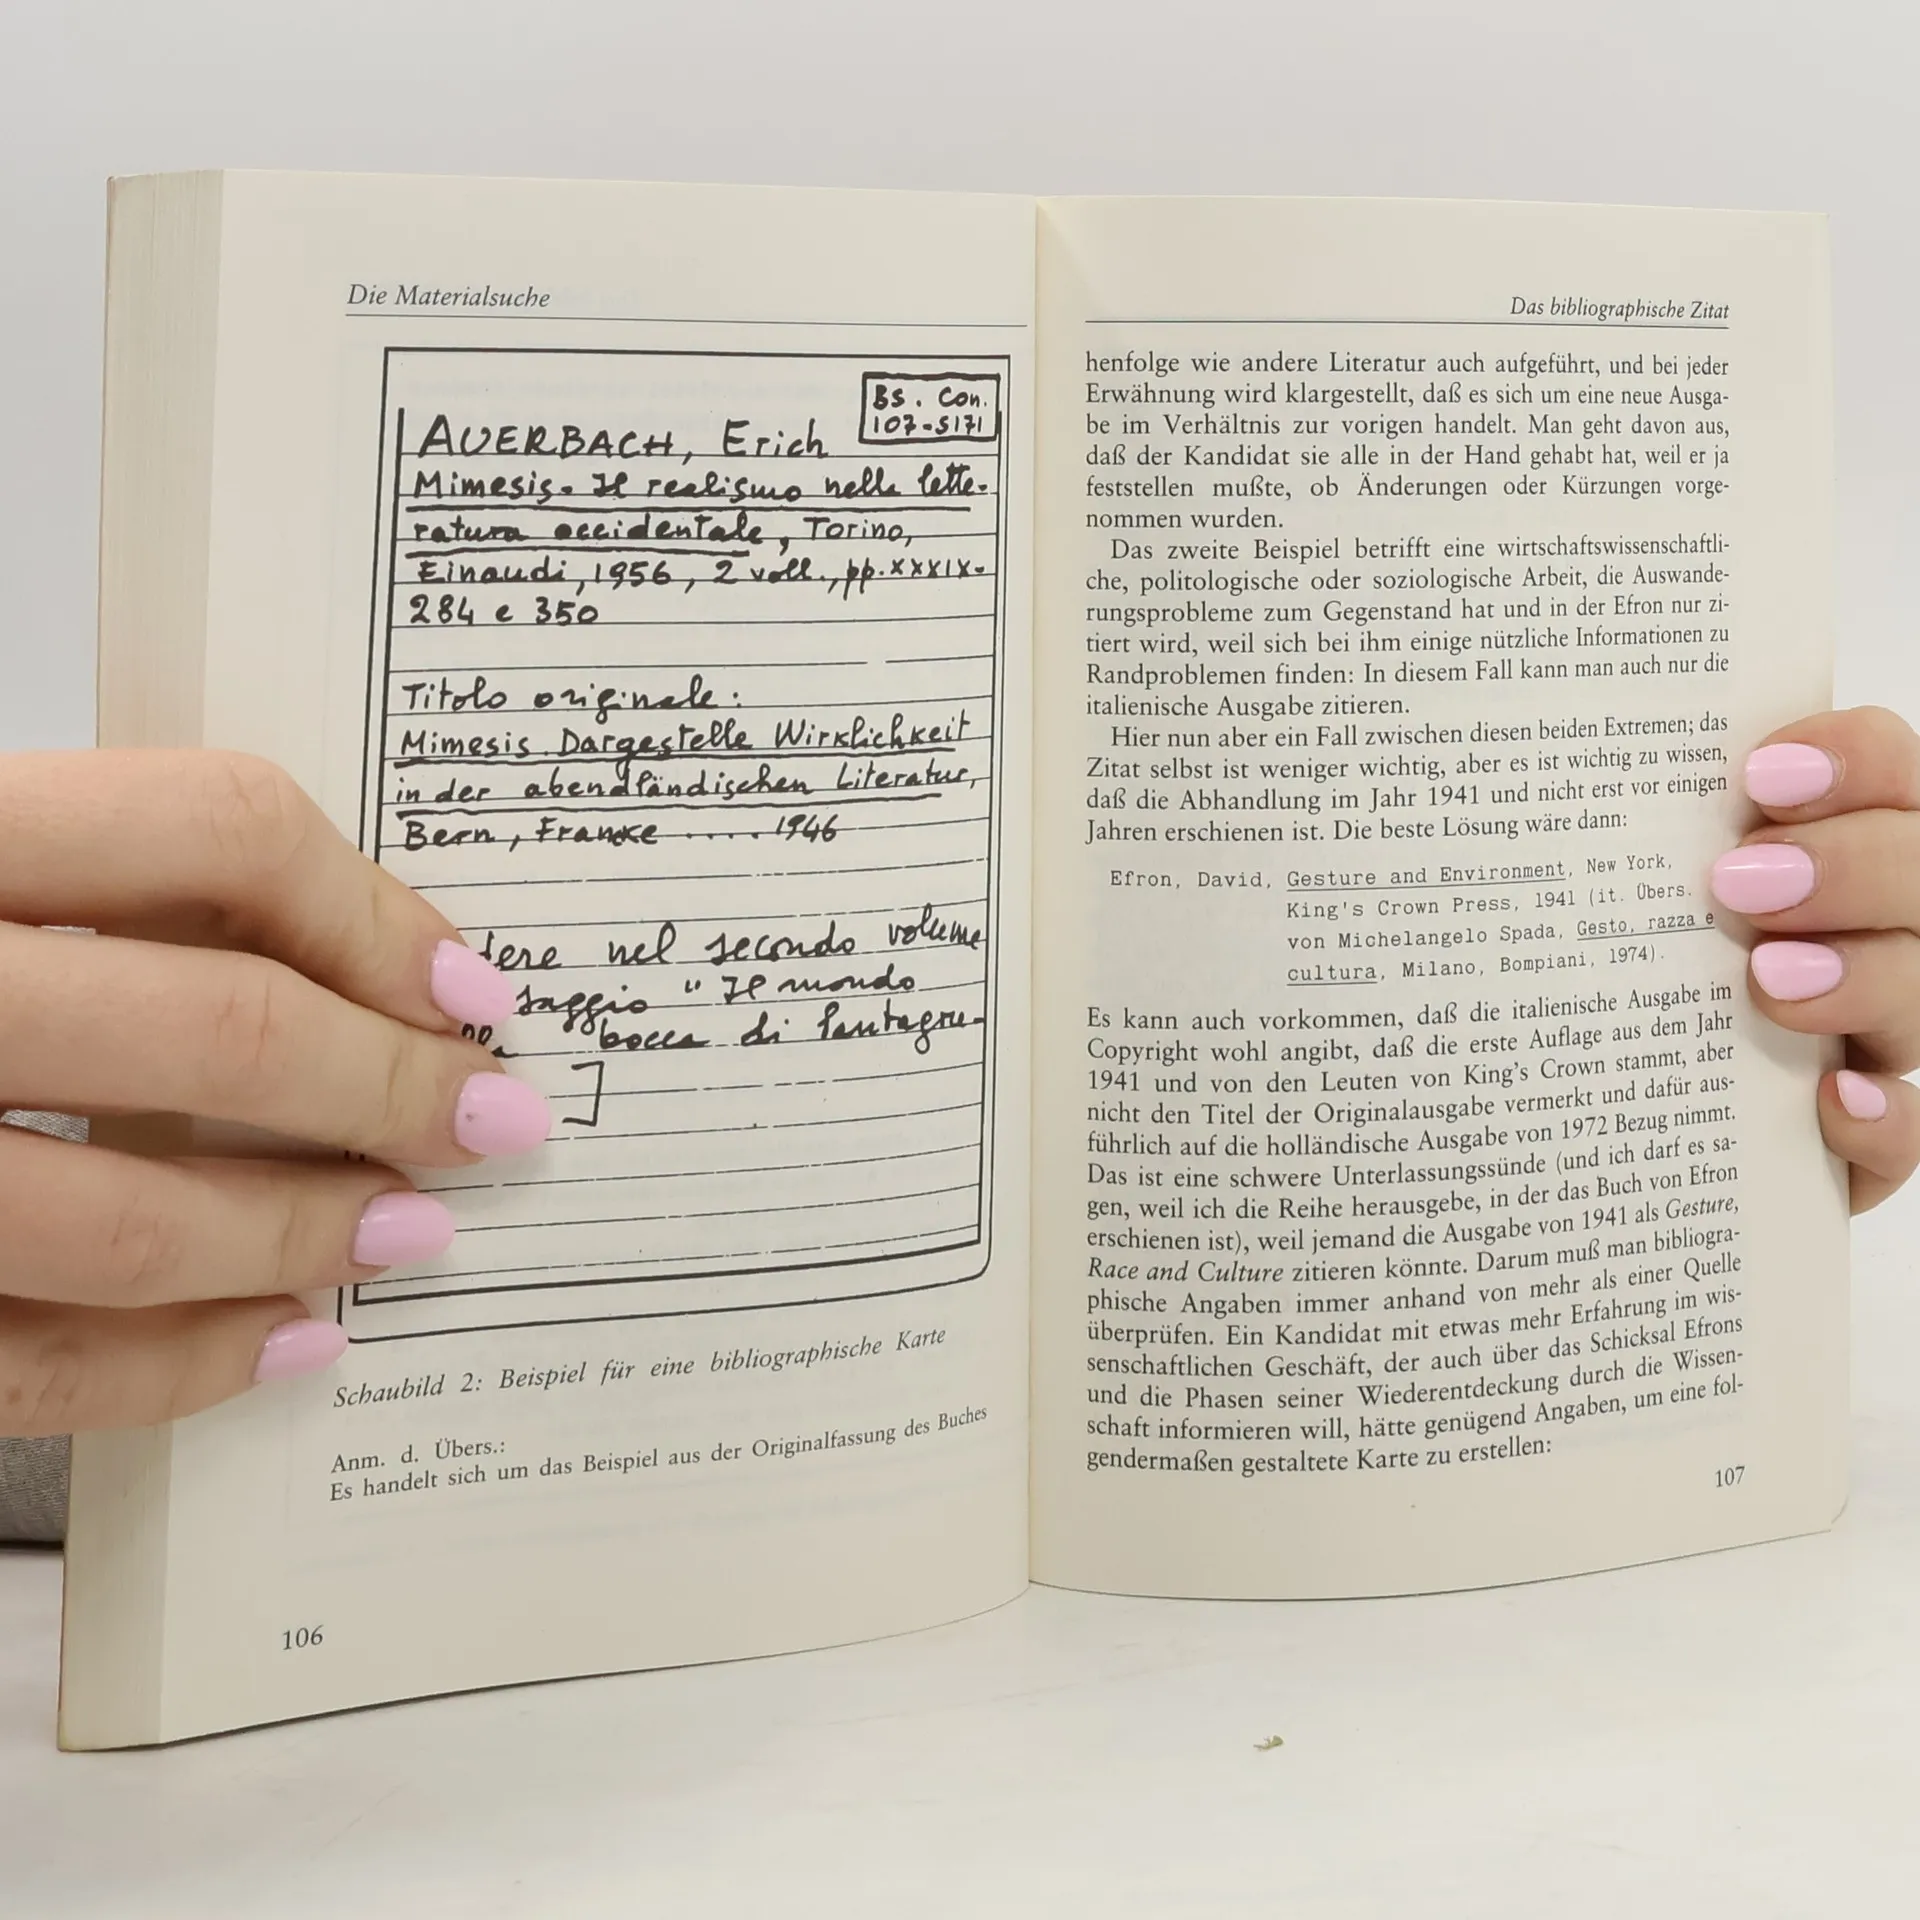 Die Materialsuche
BS. Con.
107-5171
AUERBACH, Erich
Mimesis. Il realismo nella lette-
ratura occidentale, Torino,
Einaudi, 1956, 2 voll., pp. XXXIX-
284 e 350
Titolo originale:
Mimesis. Dargestelle Wirklichkeit
in der abendländischen Literatur,
Bern, Francke .... 1946
nel secondo volume
saggio "Il mondo
bocca di Pantagru-
]
Schaubild 2: Beispiel für eine bibliographische Karte
Anm. d. Übers.:
Es handelt sich um das Beispiel aus der Originalfassung des Buches
106
Das bibliographische Zitat
henfolge wie andere Literatur auch aufgeführt, und bei jeder
Erwähnung wird klargestellt, daß es sich um eine neue Ausga-
be im Verhältnis zur vorigen handelt. Man geht davon aus,
daß der Kandidat sie alle in der Hand gehabt hat, weil er ja
feststellen mußte, ob Änderungen oder Kürzungen vorge-
nommen wurden.
Das zweite Beispiel betrifft eine wirtschaftswissenschaftli-
che, politologische oder soziologische Arbeit, die Auswande-
rungsprobleme zum Gegenstand hat und in der Efron nur zi-
tiert wird, weil sich bei ihm einige nützliche Informationen zu
Randproblemen finden: In diesem Fall kann man auch nur die
italienische Ausgabe zitieren.
Hier nun aber ein Fall zwischen diesen beiden Extremen; das
Zitat selbst ist weniger wichtig, aber es ist wichtig zu wissen,
daß die Abhandlung im Jahr 1941 und nicht erst vor einigen
Jahren erschienen ist. Die beste Lösung wäre dann:
Efron, David, Gesture and Environment, New York,
King's Crown Press, 1941 (it. Übers.
von Michelangelo Spada, Gesto, razza e
cultura, Milano, Bompiani, 1974).
Es kann auch vorkommen, daß die italienische Ausgabe im
Copyright wohl angibt, daß die erste Auflage aus dem Jahr
1941 und von den Leuten von King's Crown stammt, aber
nicht den Titel der Originalausgabe vermerkt und dafür aus-
führlich auf die holländische Ausgabe von 1972 Bezug nimmt.
Das ist eine schwere Unterlassungssünde (und ich darf es sa-
gen, weil ich die Reihe herausgebe, in der das Buch von Efron
erschienen ist), weil jemand die Ausgabe von 1941 als Gesture,
Race and Culture zitieren könnte. Darum muß man bibliogra-
phische Angaben immer anhand von mehr als einer Quelle
überprüfen. Ein Kandidat mit etwas mehr Erfahrung im wis-
senschaftlichen Geschäft, der auch über das Schicksal Efrons
und die Phasen seiner Wiederentdeckung durch die Wissen-
schaft informieren will, hätte genügend Angaben, um eine fol-
gendermaßen gestaltete Karte zu erstellen:
107